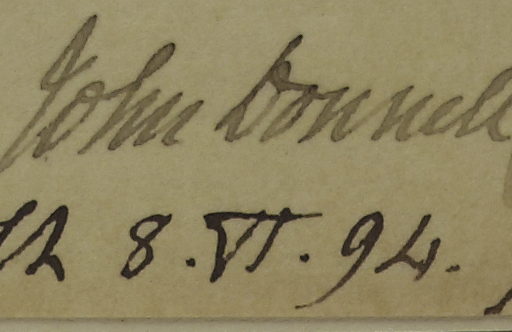 John Donnell
8. VI. 94.